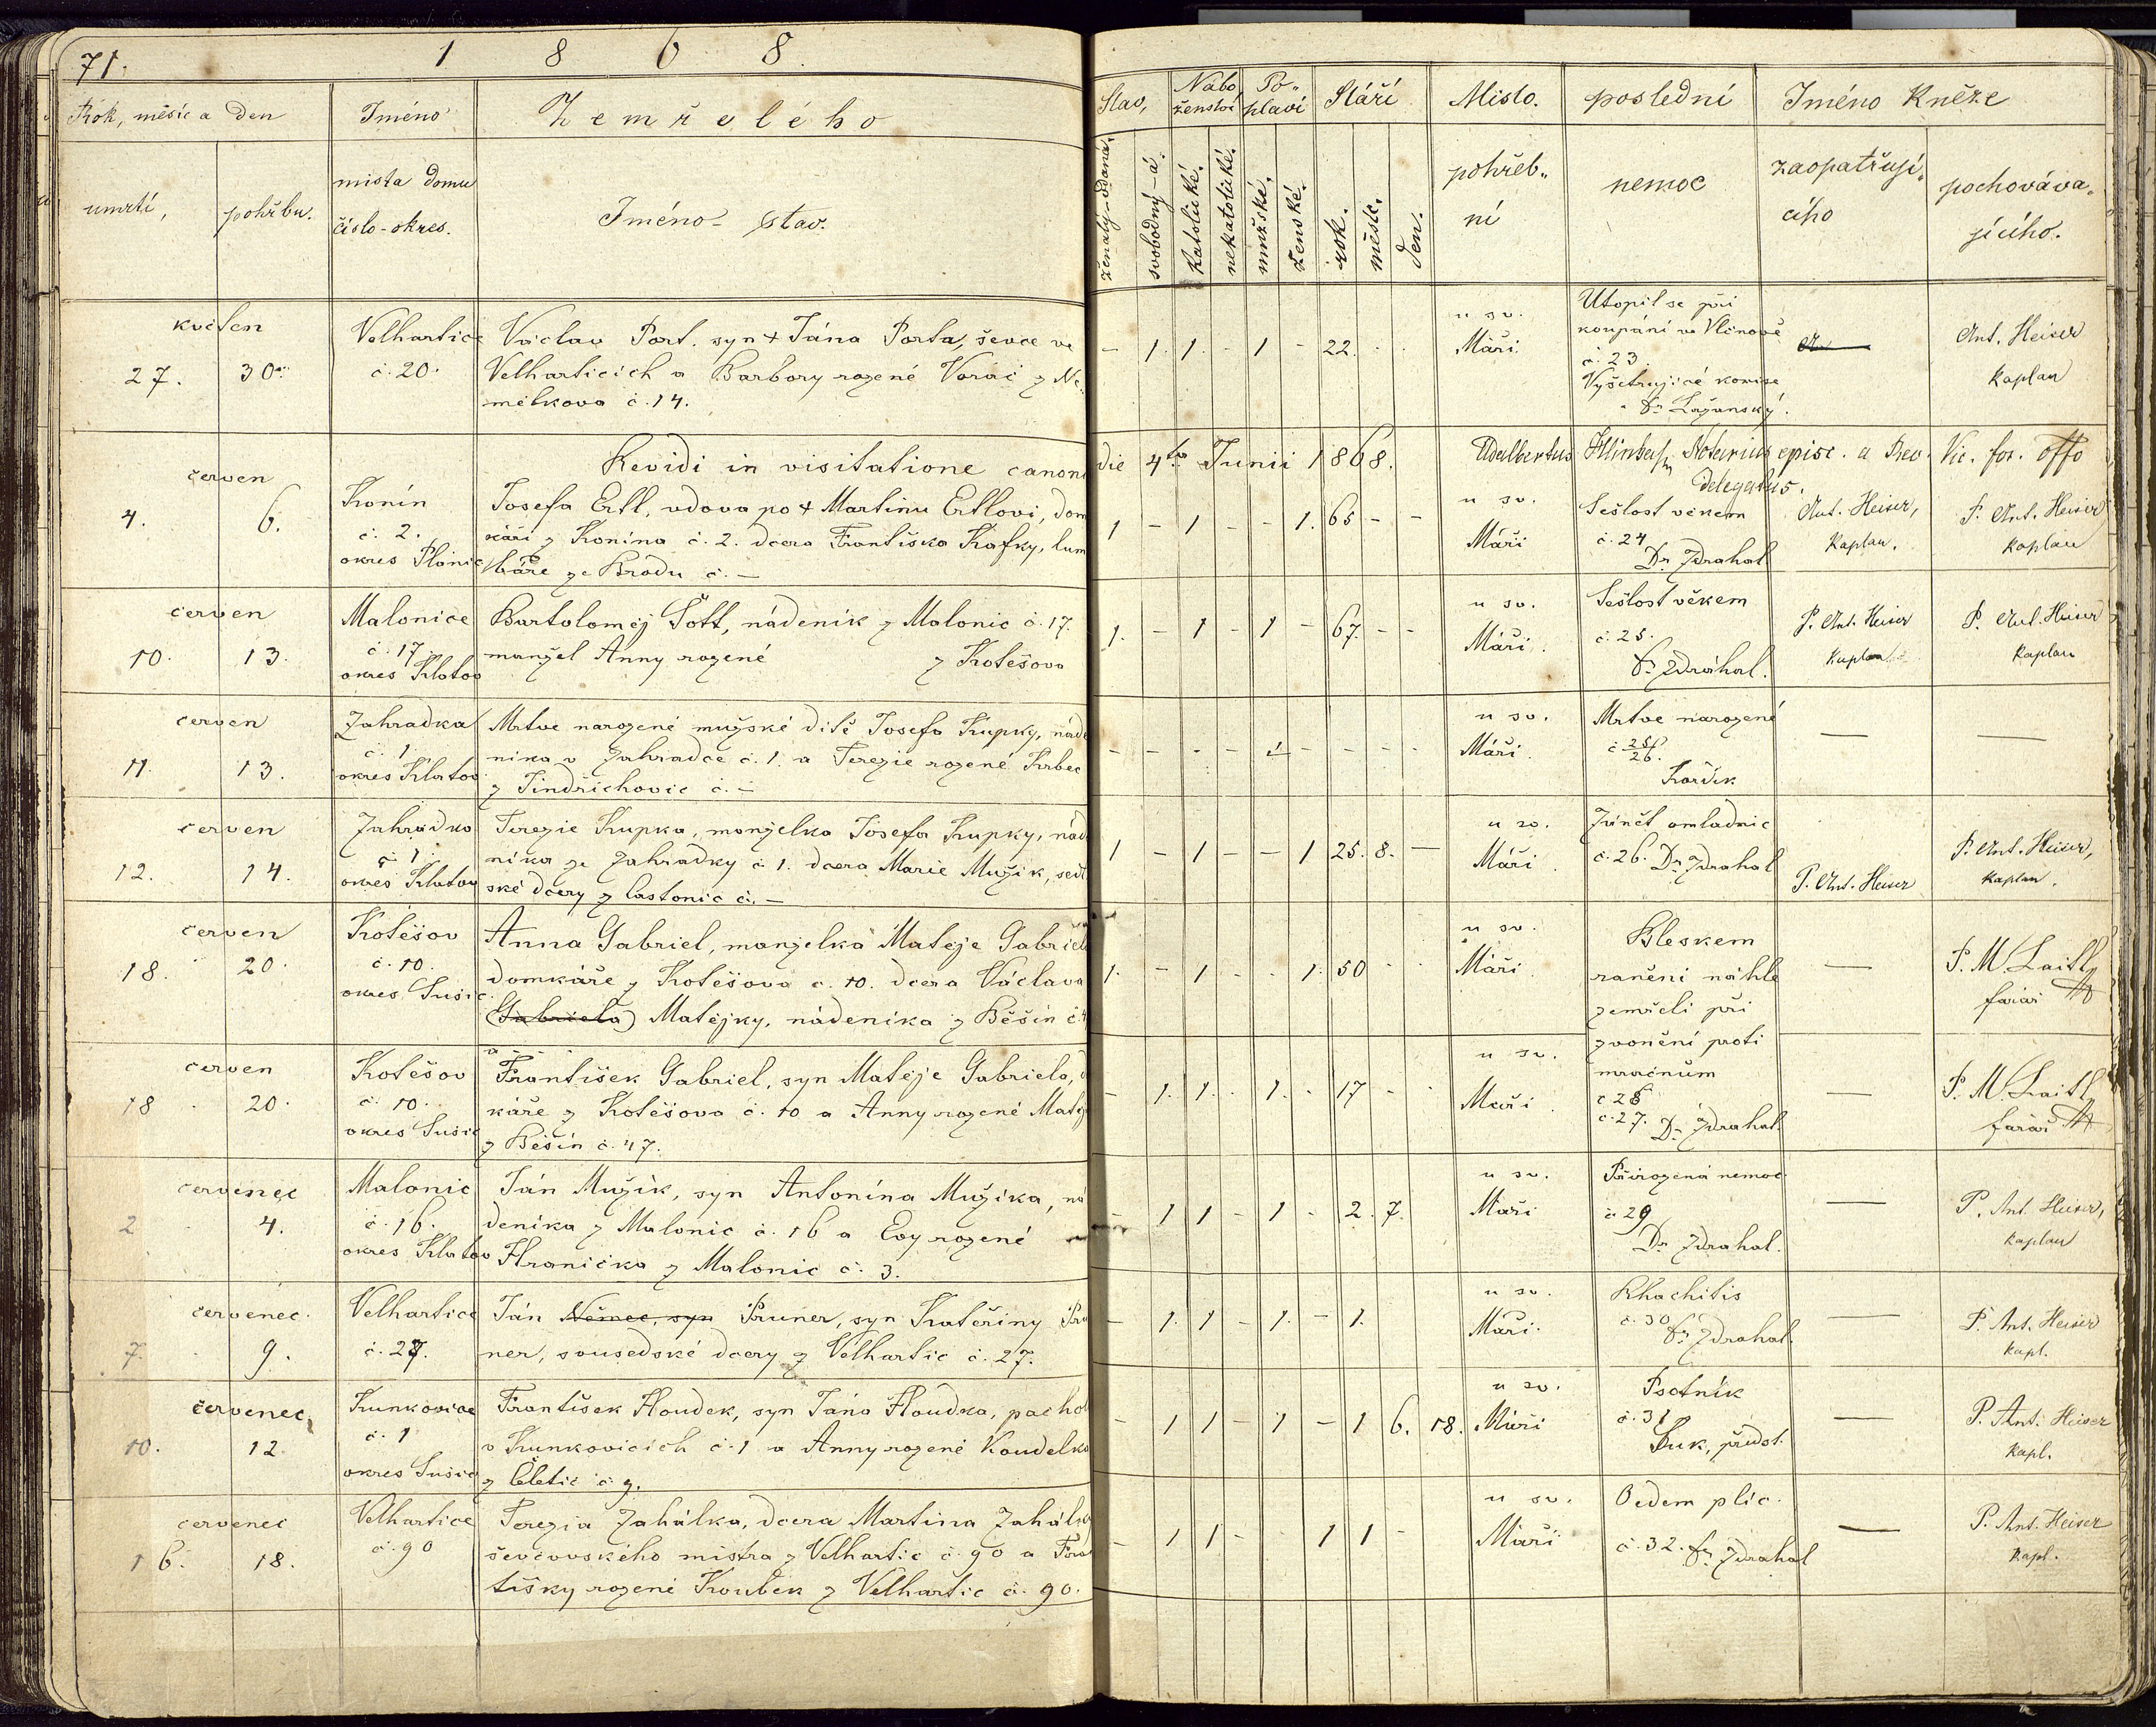 71.
1 8 6 8.
Rok, měsíc a Den
Jméno
Zemřelého
umrtí,
pohřbu.
mista domu
číslo-okres.
Jméno - stav.
Stav,
Nábo,
ženství
Po-
hlaví
Stáří
Misto.
poslední
Jméno Kněze
ženatý-vdaná.
svobodný-á.
katolické.
nekatolické.
mužské.
ženské.
rok.
měsíc.
den.
pohřeb„
ní
nemoc
zaopatřují„
cího
pochováva„
jícího.
květen
27. 30.
Velhartice
č. 20.
Václav Port. syn + Jána Porta, ševce ve
Velharticích a Barbory rozené Voráč z Ne„
mělkova č. 14.
- 1. 1. - 1 - 22. . .
u sv.
Máří.
Utopil se při
koupání ve Vlčnově
č. 23.
Vyšetrujicé komise
Dr Lažanský.
Ant. Heiser
kaplan
Revidi in visitatione canoni die 4to Junii 1868. Adalbertus Hlinka Notarius episc. a Rev. Vic. for. offo
delegatus.
červen
4. 6.
Konín
č. 2.
okres Plánic
Josefa Ertl, vdova po + Martinu Ertlovi, dom
káři z Konína č. 2. dcera Františka Kafky, lum
báře ze Brodu č. —
1 - 1 - - 1. 65 - -
u sv.
Máří
Sešlost věkem
č. 24
Dr Zdrahal
Ant. Heiser,
Kaplan.
P. Ant. Heiser
kaplan
červen
10. 13.
Malonice
č. 17.
okres Klatov
Bartoloměj Šott, nádeník z Malonic č. 17.
manžel Anny rozené z Kotěšova
1. - 1 - 1 - 67. - -
u sv.
Máří.
Sešlost věkem
č. 25.
Dr Zdráhal.
P. Ant. Heiser
Kaplan
P. Ant. Heiser
Kaplan
červen
11. 13.
Zahradka
č. 1
okres Klatov
Mrtve narozené mužské dítě Josefa Krupky, náde
níka v Zahradce č. 1. a Terezie rozené Krbec
z Jindřichovic č. —
- - - - 1 - - - -
u sv.
Máří.
Mrtve narozené
č. 25/26.
Kordík
— —
červen
12. 14.
Zahradka
č. 1.
okres Klatov
Terezie Krupka, manželka Josefa Krupky, nád
níka ze Zahrádky č. 1. dcera Marie Mužík, sedl
ské dcery z Častonic č. —
1 - 1 - - 1 25. 8. —
u sv.
Máří.
Zánět omladnic
č. 26. Dr Zdrahal
P. Ant. Heiser
P. Ant. Heiser,
kaplan.
červen
18. 20.
Kotěšov
č. 10.
okres Sušic
Anna Gabriel, manželka Matěje Gabriela
domkáře z Kotěšova č. 10. dcera Václava
(Gabriela) Matějky, nádeníka z Běšin č. 4
1. - 1 - - 1. 50 - -
u sv.
Máří.
Bleskem
raněni náhle
zemřeli při
zvonění proti
mračnům
č. 28
č. 27. Dr Zdrahal.
—
P. M. Laitl
farář
červen
18 20.
Kotěšov
č. 10.
okres Sušic
František Gabriel, syn Matěje Gabriela, d
káře z Kotěšova č. 10 a Anny rozené Matěj
z Běšín č. 47.
- 1. 1. - 1. - 17 - -
u sv.
Máří.
—
P. M. Laitl
farář
červenec
2 4.
Malonic
č. 16.
okres Klatov
Ján Mužík, syn Antonína Mužíka, ná
deníka z Malonic č. 16 a Evy rozené
Hranička z Malonic č. 3.
- 1 1 - 1 - 2. 7.
u sv.
Máří
Přirozená nemoc
č. 29
Dr Zdrahal.
—
P. Ant. Heiser,
kaplan
červenec.
7 9.
Velhartice
č. 27.
Ján Němec, syn Pruner, syn Kateřiny Pru
ner, sousedské dcery z Velhartic č. 27.
- 1. 1 - 1. - 1.
u sv.
Máří.
Rhachitis
č. 30
Dr Zdrahal.
—
P. Ant. Heiser
kapl.
červenec,
10. 12.
Kunkovice
č. 1
okres Sušic
František Houdek, syn Jána Houdka, pachol
v Kunkovicích č. 1 a Anny rozené Koudelka
z Čletic č. 9.
- 1 1 - 1 - 1 6. 18.
u sv.
Máří
Psotník
č. 31
Suk, předst.
—
P. Ant. Heiser
kapl.
červenec
16. 18.
Velhartice
č. 90
Terezia Zahálka, dcera Martina Zahálky
ševcovského mistra z Velhartic č. 90 a Fran
tišky rozené Koubek z Velhartic č. 90.
- 1 1 - - 1 1 -
u sv.
Máří
Oedem plic.
č. 32. Dr Zdrahal
—
P. Ant. Heiser
kapl.